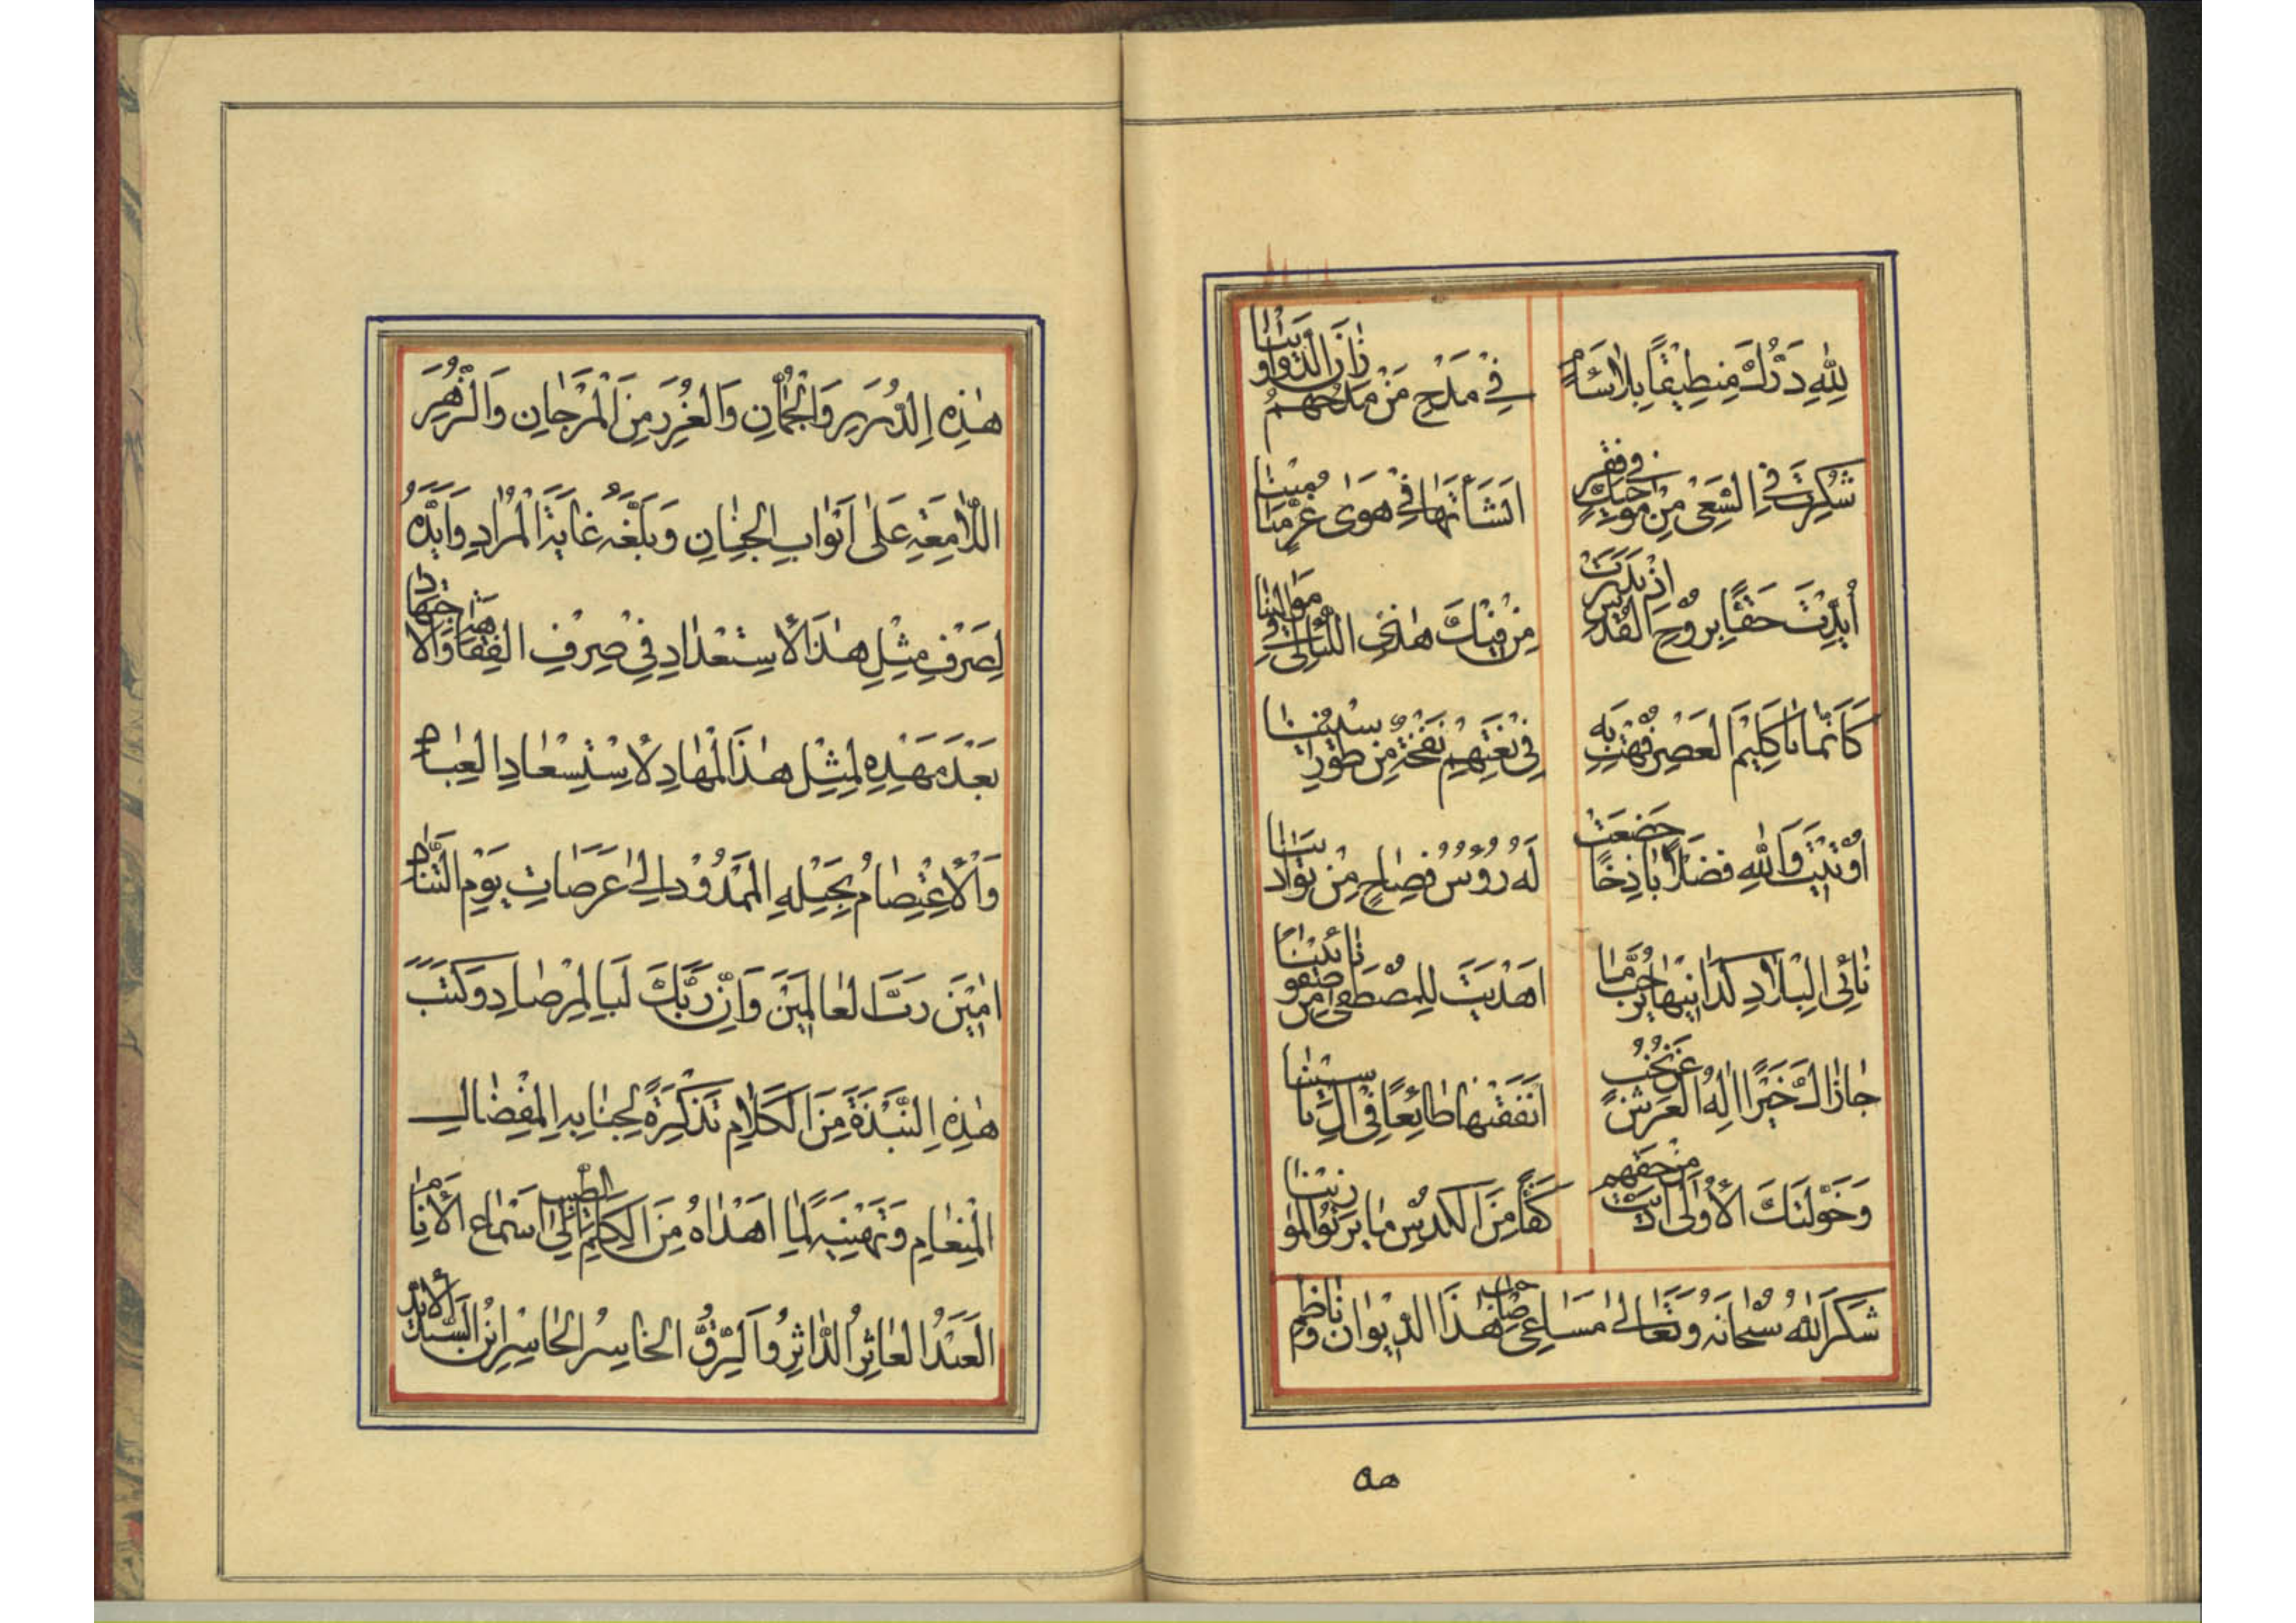 لِلّٰهِ دَرُّكَ مِنطِيقًا بِلَا سَأَمٍ في مَدْحِ مَنْ مَدْحُهُمْ زَانَ الدَّوَاوِيْنَا
شُكِرْتَ فِي السَّعْيِ مِنْ اَنْشَأْتَهَا فِيْ هَوٰى غُرٍّ مَيَامِيْنَا
أُيِّدْتَ حَقًّا بِرُوْحِ الْقُدْسِ اِذْ بَدَرَتْ مِنْ فِيْكَ هٰذِي اللَّئَالِيْ فِيْ مَوَالِيْنَا
كَاَنَّمَا يَا كَلِيْمَ الْعَصْرِ فُهْتَ بِهِ فِيْ نَغْتِهِمْ نَفْخَةٌ مِنْ طُوْرِ سِيْنِيْنَا
اُوْتِيْتَ وَاللّٰهِ فَضْلًا بَاذِخًا خَضَعَتْ لَهُ رُؤُوْسُ فِصَاحٍ مِنْ
نَائِي الْبِلَادِ اَهْدَيْتَ لِلْمُصْطَفَيْنَ
جَازَاكَ خَيْرًا اِلٰهُ الْعَرْشِ عَنْ اَنْفَقْتَهَا طَائِعًا فِيْ اٰلِ يَاسِيْنَا
وَخَوَّلَتْكَ الْأُوْلٰى مِنْ حَقِّهِمْ كَفًّا مِنَ
شَكَرَ اللّٰهُ سُبْحَانَهُ وَتَعَالٰى مَسَاعِيَ صَاحِبِ هٰذَا الدِّيْوَانِ وَنَاظِمِ
هه
هٰذِهِ الدُّرَرِ وَالْجُمَانِ وَالْغُرَرِ مِنَ الْمَرْجَانِ وَالزُّهُرِ
اللَّامِعَةِ عَلٰى اَبْوَابِ الْجِنَانِ وَبَلَّغَهُ غَايَةَ الْمُرَادِ وَاَيَّدَهُ
لِصَرْفِ مِثْلِ هٰذَا الْاِسْتِعْدَادِ فِيْ صِرْفِ الْفَقَاهَةِ وَالْاجْتِهَادِ
بَعْدَ مَهْدِهِ لِمِثْلِ هٰذَا الْمِهَادِ لِاسْتِسْعَادِ الْعِبَادِ
وَالْاِعْتِصَامُ بِحَبْلِهِ الْمَمْدُوْدِ اِلٰى عَرَصَاتِ يَوْمِ التَّنَادِ
اٰمِيْنَ رَبَّ الْعَالَمِيْنَ وَاِنَّ رَبَّكَ لَبِالْمِرْصَادِ وَكَتَبَ
هٰذِهِ النُّبْذَةَ مِنَ الْكَلَامِ تَذْكِرَةً لِجَنَابِهِ الْمِفْضَالِ
الْمِنْعَامِ وَتَهْنِيَةً لِمَا اَهْدَاهُ مِنَ الْكَلِمِ الطَّيِّبِ اِلٰى اَسْمَاعِ الْأَنَامِ
الْعَبْدُ الْعَاثِرُ الدَّاثِرُ وَالرِّقُّ الْخَاسِرُ الْحَاسِرُ ابْنُ السَّيِّدِ